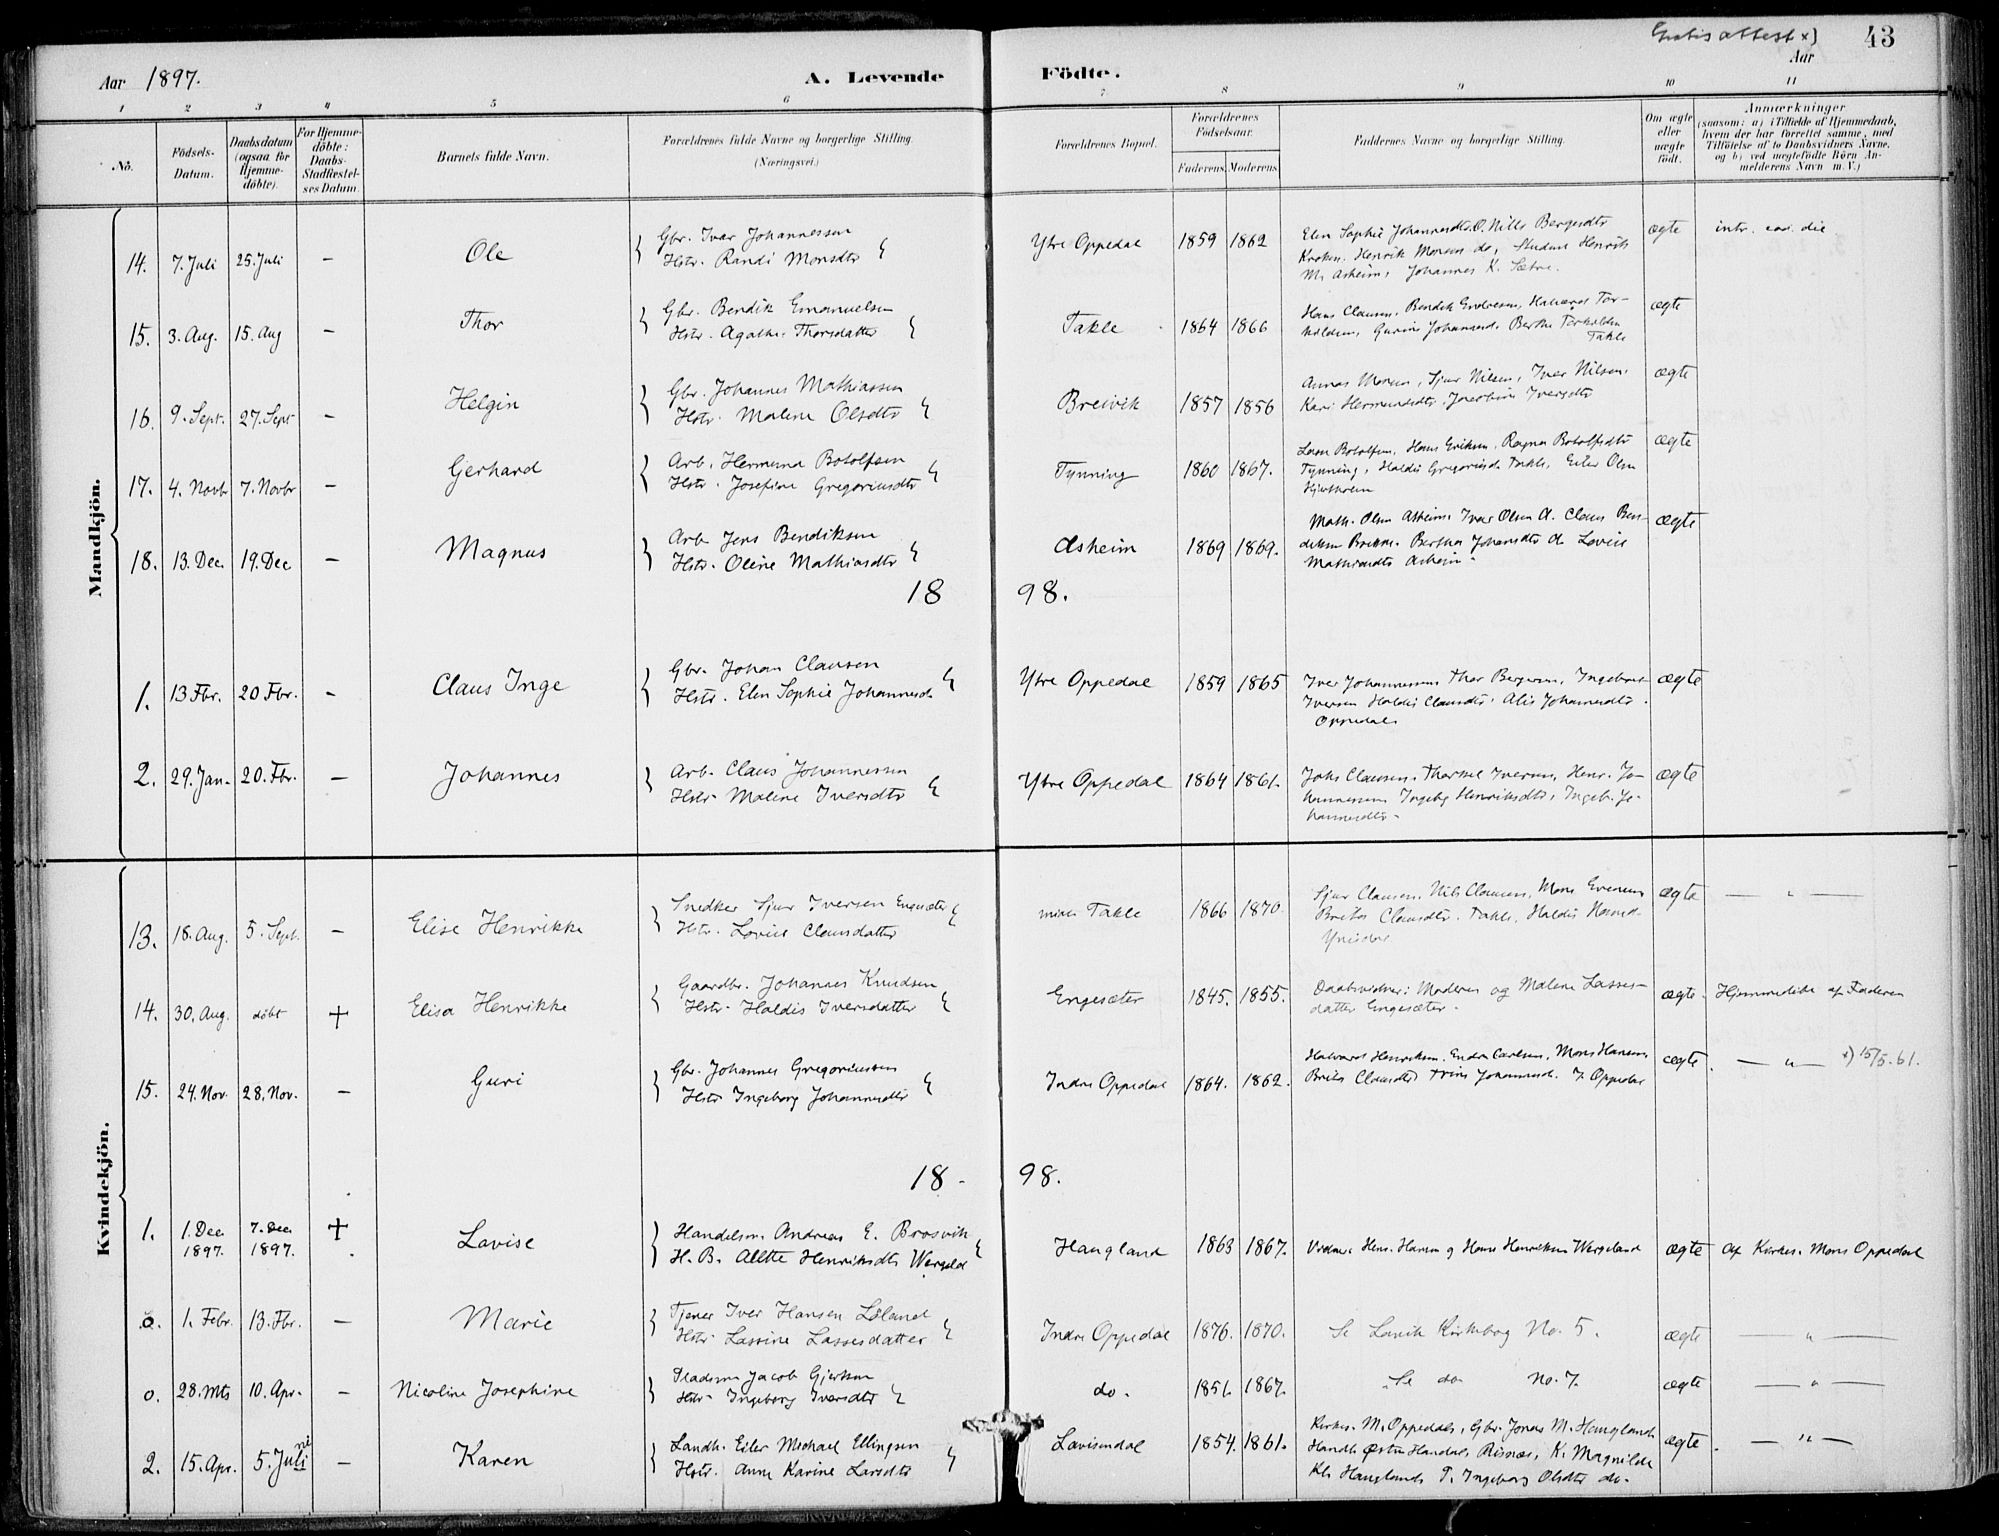 Gratis attest x)
43
Aar 1897.
A. Levende Födte.
Aar
1 2 3 4 5 6 7 8 9 10 11
No.
Födsels-Datum.
Daabsdatum (ogsaa for Hjemme-döbte).
For Hjemme-döbte: Daabs-Stadfæstel-ses Datum.
Barnets fulde Navn.
Forældrenes fulde Navne og borgerlige Stilling. (Næringsvei.)
Forældrenes Bopæl.
Forældrenes Födselsaar.
Faderens. Moderens.
Faddernes Navne og borgerlige Stilling.
Om ægte eller uægte födt.
Anmærkninger
(saasom: a) i Tilfælde af Hjemmedaab, hvem der har forrettet samme, med Tilföielse af to Daabsvidners Navne, og b) ved uægtefödte Börn An-melderens Navn m. V.)
Mandkjön.
14. 7. Juli 25. Juli – Ole
Gbr. Ivar Johannessen
Hstr. Randi Monsdtr
Ytre Oppedal 1859 1862
Elen Sophie Johannesdtr O. Nille Bergesdtr
Kroken. Henrik Monsen do, Student Henrik
M. Asheim, Johannes K. Sætre.
ægte
15. 3. Aug. 15. Aug – Thor
Gbr. Bendik Emanuelsen
Hstr. Agathe Thorsdatter
Takle 1864 1866
Hans Clausen, Bendik Endresen, Halvard Tor-
kildsen, Gurine Johannesd. Berthe Torkildsd
Takle
ægte
16. 9. Sept. 27. Sept – Helgin
Gbr. Johannes Mathiassen
Hstr. Malene Olsdtr
Breivik 1857 1856
Annas Monsen, Sjur Nilsen, Iver Nilsen,
Kari Hermundsdtr, Iversdtr
ægte
17. 4. Novbr 7. Novbr – Gerhard
Arb. Hermund Botolfsen
Hstr. Josefine Gregoriusdtr
Tynning 1860 1867.
Lasse Botolfsen, Hans Eriksen, Ragna Botolfsdtr
Tynning, Haldis Gregoriusd. Takle, Eiler Olsn
ægte
18. 13. Dec. 19. Dec – Magnus
Arb. Jens Bendiksen
Hstr. Oline Mathiasdtr
Asheim 1869 1869.
Math. Olsen Asheim, Ivar Olsen A. Claus Ben-
diksen Brekke. Berthe Johansdtr A. Lovise
Mathiasdtr Asheim.
ægte
1898.
1. 13 Fbr. 20 Fbr. – Claus Inge
Gbr. Johan Clausen
Hstr. Elen Sophie Johannesd.
Ytre Oppedal 1859 1865
Iver Johannessen, Thor Bergesen, Ingebret
Iversen Haldis Clausdtr. Alis Johannesdtr.
Oppedal
ægte
2. 29. Jan. 20. Fbr. – Johannes
Arb. Claus Johannessen
Hstr. Malene Iversdtr
Ytre Oppedal 1864 1861.
Johs Clausen, Thorkel Iversen, Henr. Jo-
hannessen Ingebg Henriksdtr, Ingeb. Jo-
hannesdtr.
ægte
Kvindekjön.
13. 18. Aug. 5. Sept. – Elise Henrikke
Snedker Sjur Iversen Engesæter
Hstr. Lovise Clausdatter
Takle 1866 1870.
Sjur Clausen, Nils Clausen, Mons Evensen
Brita Clausdtr. Takle, Haldis
ægte — " —
14. 30. Aug. döbt + Elisa Henrikke
Gaardbr. Johannes Knudsen
Hstr. Haldis Iversdatter
Engesæter 1845. 1855.
Daabsvidner: Moderen og Malene Lasses-
datter Engesæter.
ægte. Hjemmedöbt af Faderen
15. 24. Nov. 28. Nov. – Guri
Gbr. Johannes Gregoriussen
Hstr Ingeborg Johannesdtr
Indre Oppedal 1864. 1862.
Halvard Henriksen. Endre Carlsen, Mons Hansen
Brita Clausdtr Trine Johannesd. I. Oppedal
ægte. — " — x) 15/5. 61.
18-98.
1. 1. Dec 1897. 7. Dec 1897. + Lavise
Handelsm. Andreas E. Brosvik
H. B. Alette Henriksdtr Wergeld
Haugland 1863 1867.
Vidner: Henr. Hansen og Hans Henriksen Wergeland
ægte Af Kirkes. Mons Oppedal
o. 1. Febr. 13. Fbr. – Marie
Tjener Iver Hansen Island
Hstr. Lassine Lassesdatter
Indre Oppedal 1876. 1870.
Se Lavik Kirkebog No. 5.
ægte — " —
o. 28. Mts 10. Apr. – Nicoline Josephine
Pladsm Jacob Gjertsen
Hstr Ingeborg Iversdtr
do. 1851. 1867.
Se do No. 7.
ægte — " —
2. 15. Apr. 5. Juli ni – Karen
Landh. Eiler Michael Ellingsen
Hstr. Anne Karine Larsdtr
Lavisendal 1854. 1861.
Kirkes. M. Oppedal, Gbr. Jonas M. Haugland
Handh. Østen Handal, Risnæs, K. Magnilde
Kl. Haugland, T. Ingeborg Olsdtr do.
ægte. — " —